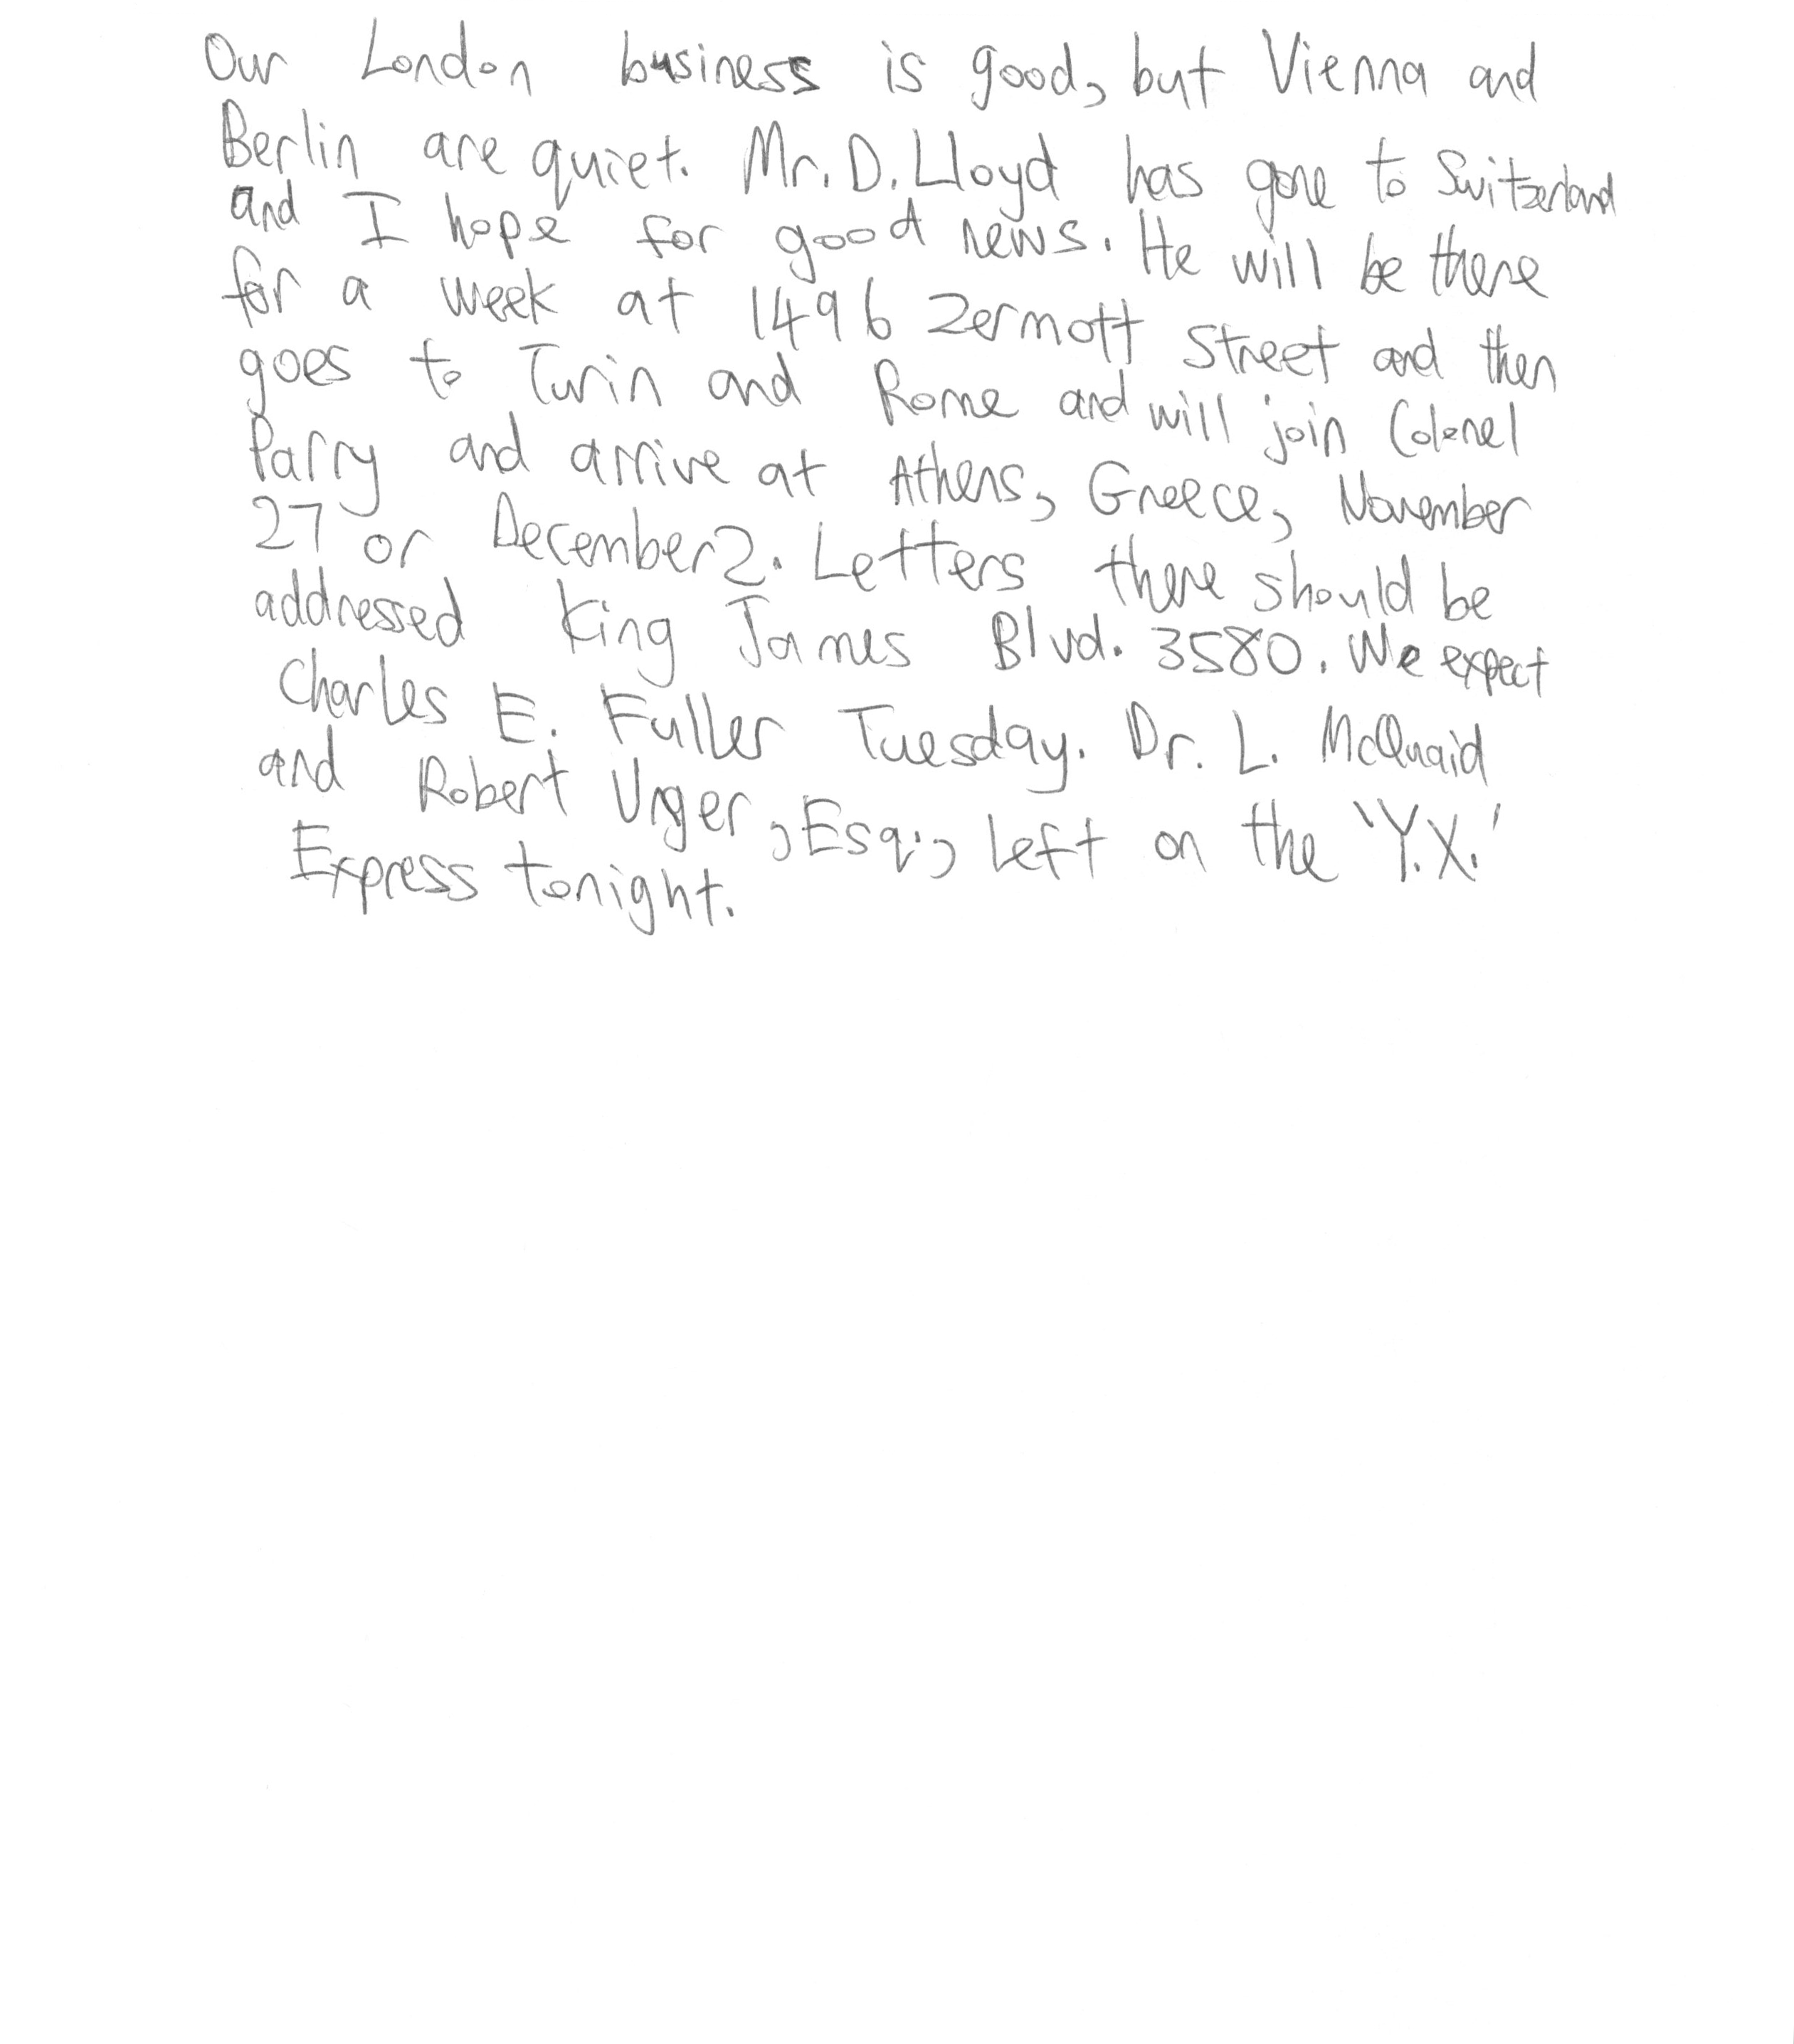 Our London business is good, but Vienna and
Berlin are quiet. Mr. D. Lloyd has gone to Switzerland
and I hope for good news. He will be there
for a week at 1496 Zermott Street and then
goes to Turin and Rome and will join Colonel
Parry and arrive at Athens, Greece, November
27 or December 2. Letters there should be
addressed King James Blvd. 3580. We expect
Charles E. Fuller Tuesday. Dr. L. McQuaid
and Robert Unger, Esq., left on the 'Y.X.'
Express tonight.